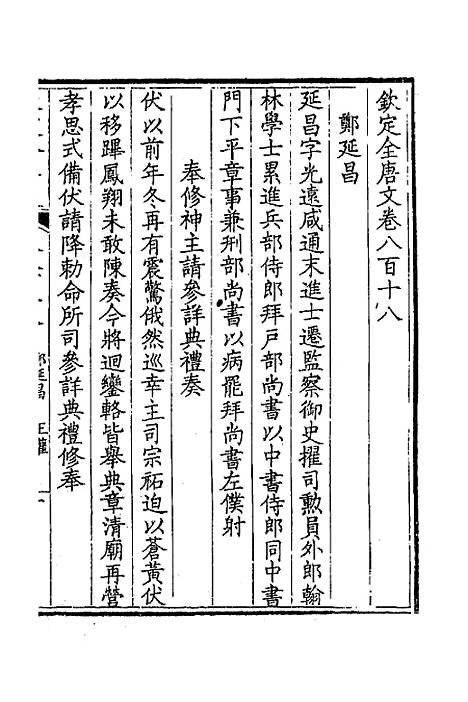 欽定全唐文卷八百十八
鄭延昌
延昌字光遠咸通末進士遷監察御史擢司勳員外郎翰
林學士累進兵部侍郎拜戶部尚書以中書侍郎同中書
門下平章事兼刑部尚書以病罷拜尚書左僕射
奉修神主請參詳典禮奏
伏以前年冬再有震驚俄然巡幸主司宗祏迫以蒼黃伏
以移蹕鳳翔未敢陳奏今將迴鑾輅皆舉典章清廟再營
孝思式備伏請降勅命所司參詳典禮修奉
鄭延昌 王權 一